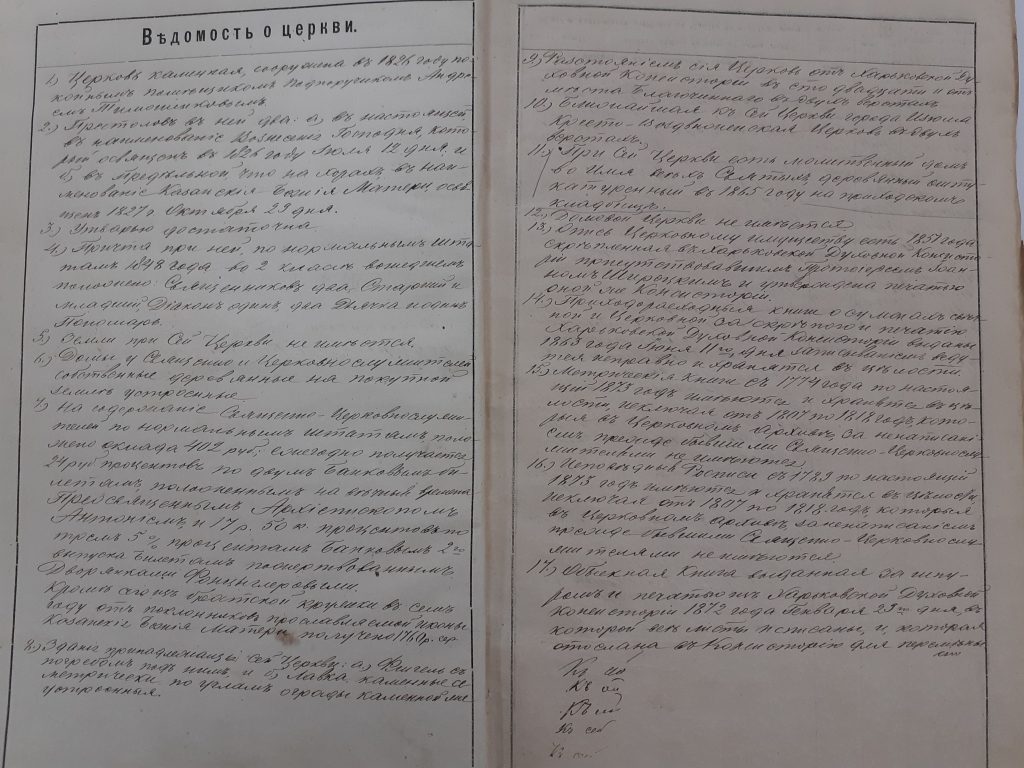 Вѣдомость о церкви.
1) Церковь каменная, сооружена въ 1826 году по-
койнымъ помѣщикомъ Подпоручикомъ Андре-
емъ Тимошенковымъ.
2) Престоловъ въ ней два: а) въ настоящей
въ наименованіе Вознесенія Господня, кото-
рый освященъ въ 1826 году Іюля 12 дня, и
б) въ придѣльной, что на хорахъ, въ наи-
менованіе Казанскія Божія Матери, освя-
щенъ 1827 г. Октября 29 дня.
3) Утварью достаточна.
4) Причта при ней, по нормальнымъ шта-
тамъ 1848 года, во 2 классѣ
положено: Священниковъ два, Старшій и
младшій, Діаконъ одинъ, два Дьячка и одинъ
Пономарь.
5) Земли при сей Церкви не имѣется.
6) Домы у Священно и Церковнослужителей
собственные деревянные на покупной
землѣ устроенные.
7) На содержаніе Священно-Церковнослужи-
телей по нормальнымъ штатамъ поло-
жено оклада 402 руб; ежегодно получается
24 руб процентовъ по двумъ Банковымъ би-
летамъ положеннымъ на вѣчныя времена
Преосвященнымъ Архіепископомъ
Антоніемъ и 17 р. 50 к процентовъ по
тремъ 5% процентамъ Банковымъ 2го
выпуска билетамъ пожертвованнымъ
Дворянками
Кромѣ сего изъ братской кружки въ семъ
году отъ поклонниковъ прославляемой иконы
Казанскія Божія Матери получено 1760 р. сер.
8) Зданія принадлежащія сей Церкви: а) Флигель съ
погребомъ подъ нимъ, и б) Лавка каменные си-
метрически по угламъ ограды каменной же
устроенныя.
9) Разстояніемъ сія Церковь отъ Харьковской Ду-
ховной Консисторіи въ сто двадцати и отъ
мѣста Благочиннаго въ двухъ верстахъ.
10) Ближайшая къ сей Церкви города Изюма
Кресто-Воздвиженская Церковь въ двухъ
верстахъ.
11) При сей Церкви есть молитвенный домъ
во имя всѣхъ Святыхъ деревянный ошту-
катуренный въ 1865 году на приходскомъ
кладбищѣ.
12) Домовой Церкви не имѣется.
13) Опись Церковному имуществу есть 1857 года
скрѣпленная въ Харьковской Духовной Консисто-
ріи присутствовавшимъ Протоіереемъ Іоан-
номъ и утверждена печатью
оной же Консисторіи.
14) Приходорасходныя книги о суммахъ свѣч-
ной и Церковной за скрѣпою и печатью
Харьковской Духовной Консисторіи выданы
1863 года Іюня 11го дня записываніемъ ведут-
ся исправно и хранятся въ цѣлости.
15) Метрическія книги съ 1774 года по настоя-
щій 1873 годъ имѣются и хранятся въ цѣ-
лости исключая отъ 1807 по 1818 годъ, кото-
рыя въ Церковномъ архивѣ, за ненаписані-
емъ прежде бывшими Священно-Церковнослу-
жителями не имѣются.
16) Исповѣдныя Росписи съ 1739 по настоящій
1873 годъ имѣются и хранятся въ цѣлости,
исключая отъ 1807 по 1818 годъ которыя
въ Церковномъ архивѣ за ненаписаніемъ
прежде бывшими Священно-Церковнослу-
жителями не имѣются.
17) Обыскная Книга выданная за шну-
ромъ и печатью изъ Харьковской Духовной
Консисторіи 1872 года Генваря 29го дня, въ
которой всѣ листы исписаны, и, которая
отослана въ Консисторію для
Къ
Къ
Къ
Къ сей